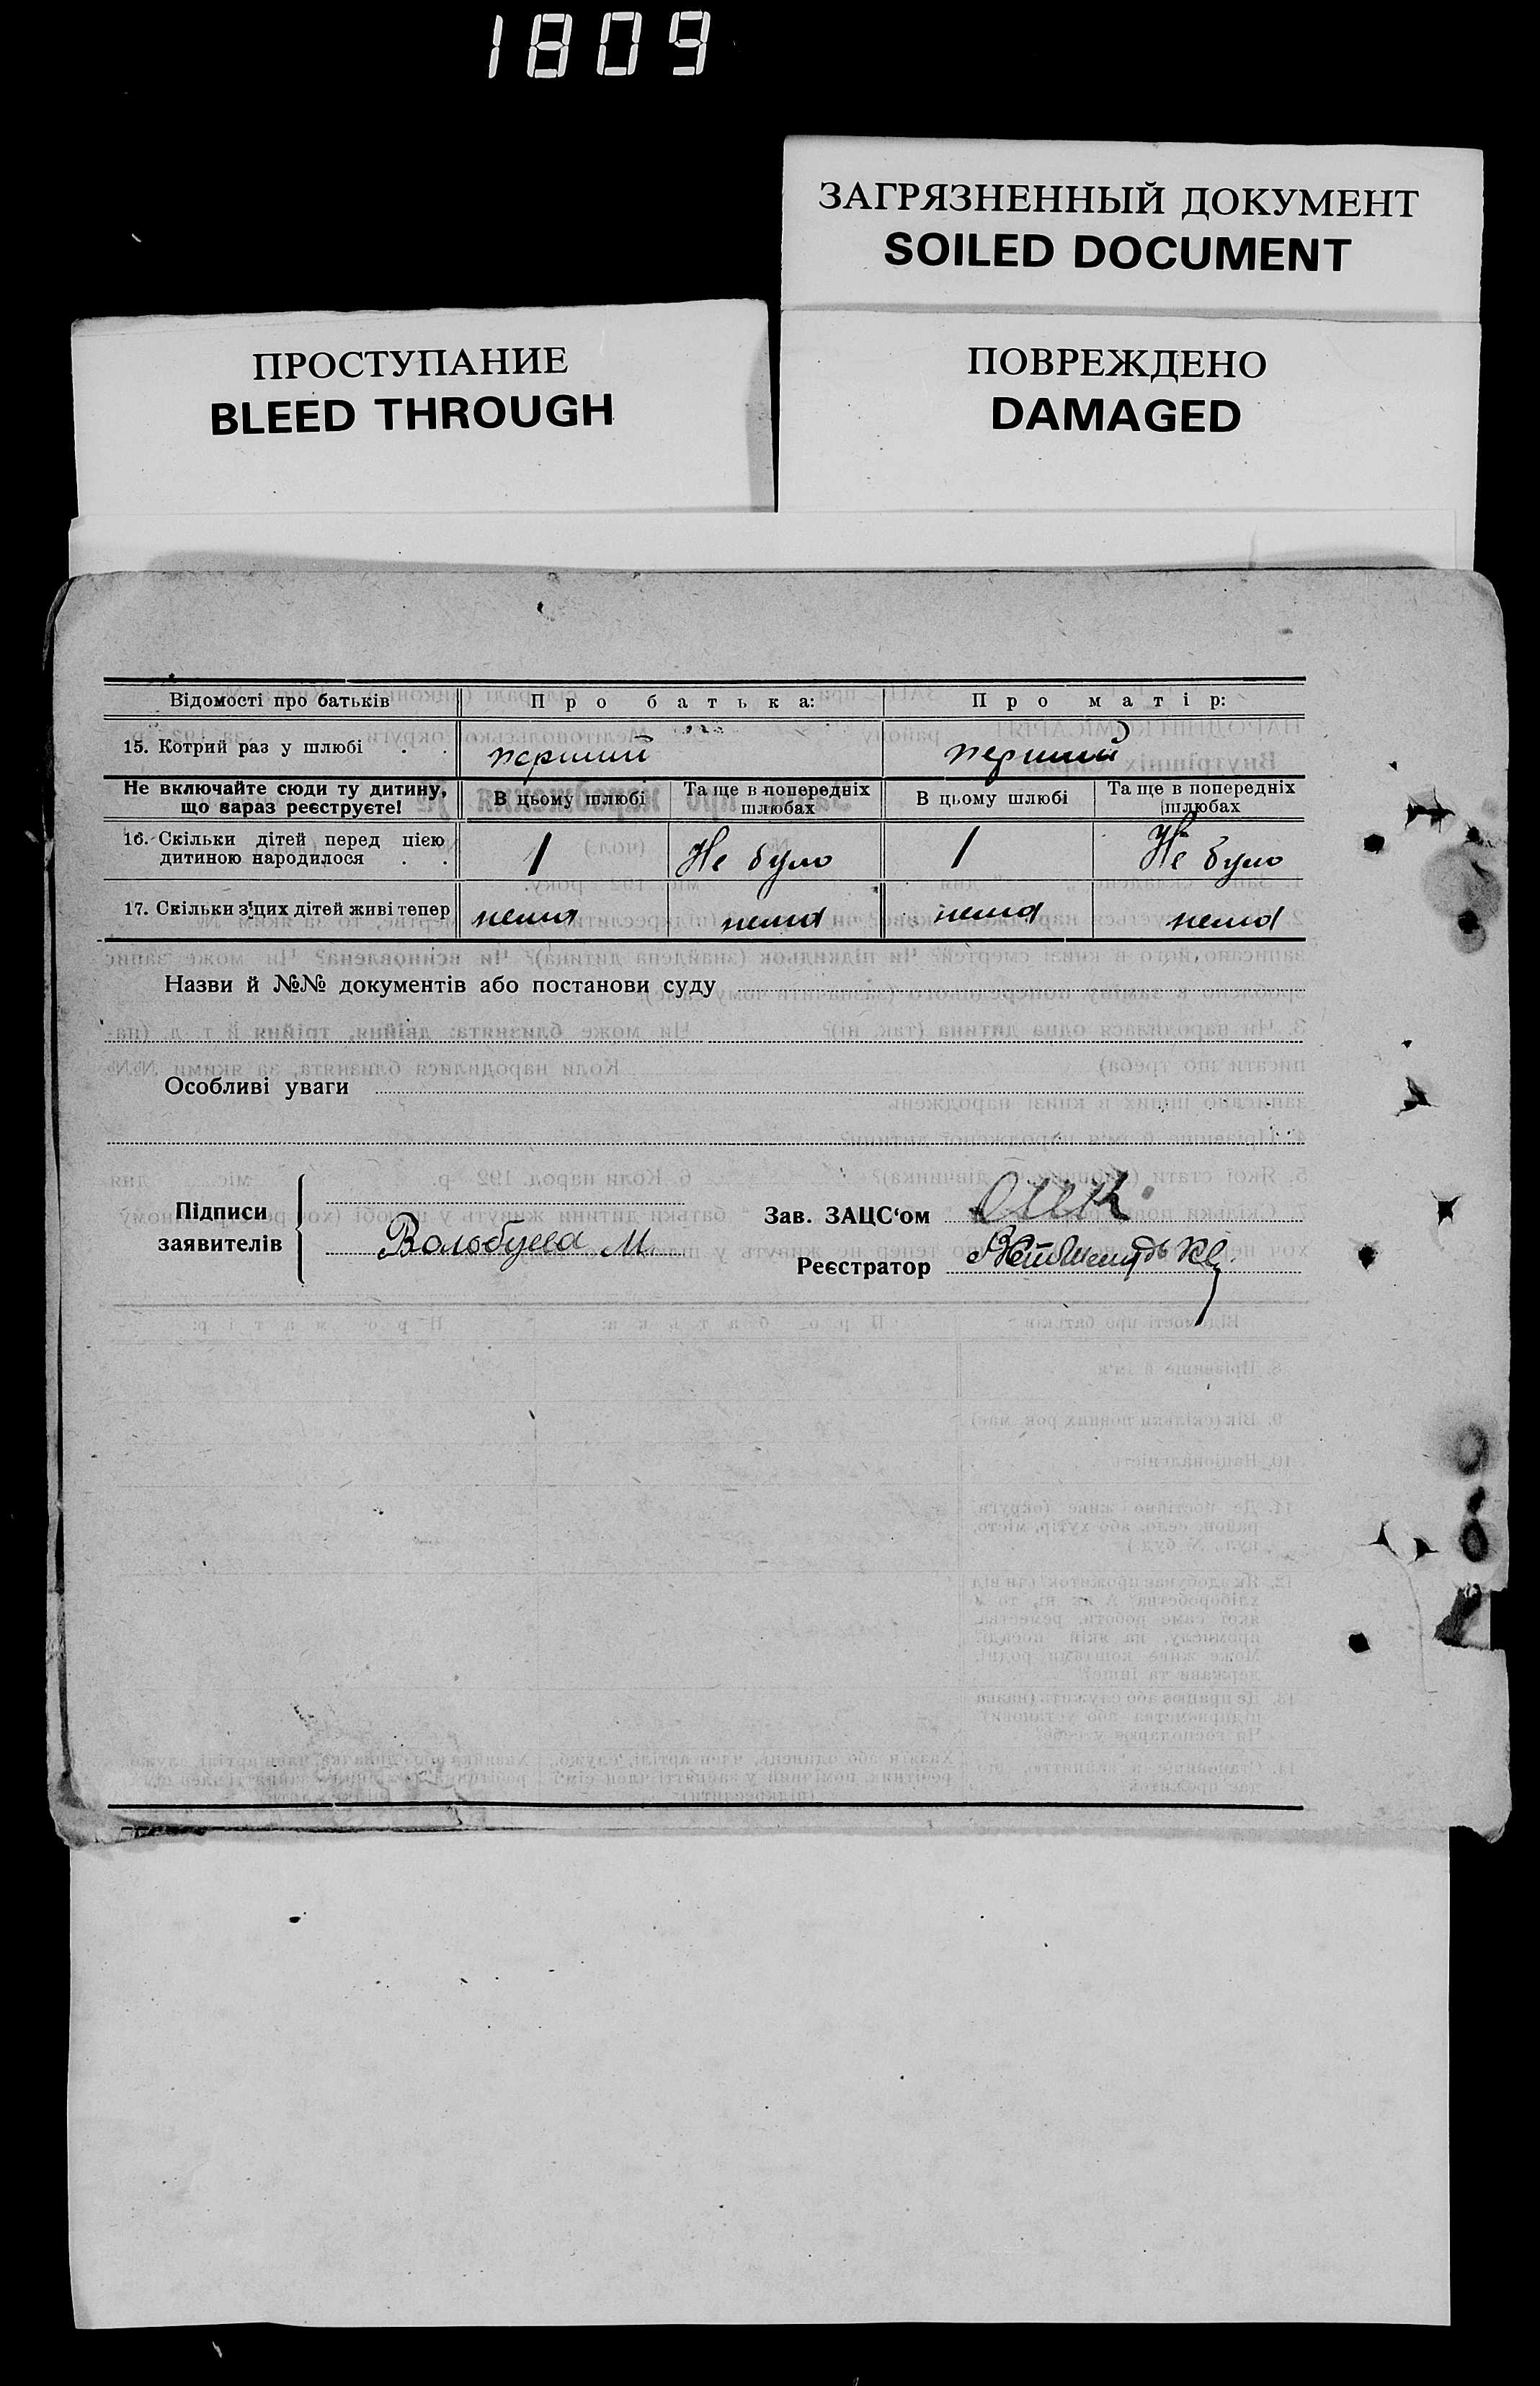 1809
ЗАГРЯЗНЕННЫЙ ДОКУМЕНТ
SOILED DOCUMENT
ПРОСТУПАНИЕ
BLEED THROUGH
ПОВРЕЖДЕНО
DAMAGED
Відомості про батьків Про батька: Про матір:
15. Котрий раз у шлюбі . . перший перший
Не включайте сюди ту дитину, що зараз реєструєте! В цьому шлюбі Та ще в попередніх шлюбах В цьому шлюбі Та ще в попередніх шлюбах
16. Скільки дітей перед цією дитиною народилося . . 1 Не було 1 Не було
17. Скільки з цих дітей живі тепер нема нема нема нема
Назви й №№ документів або постанови суду
Особливі уваги
Підписи заявителів
Волобуева М.
Зав. ЗАЦС‘ом
Реєстратор